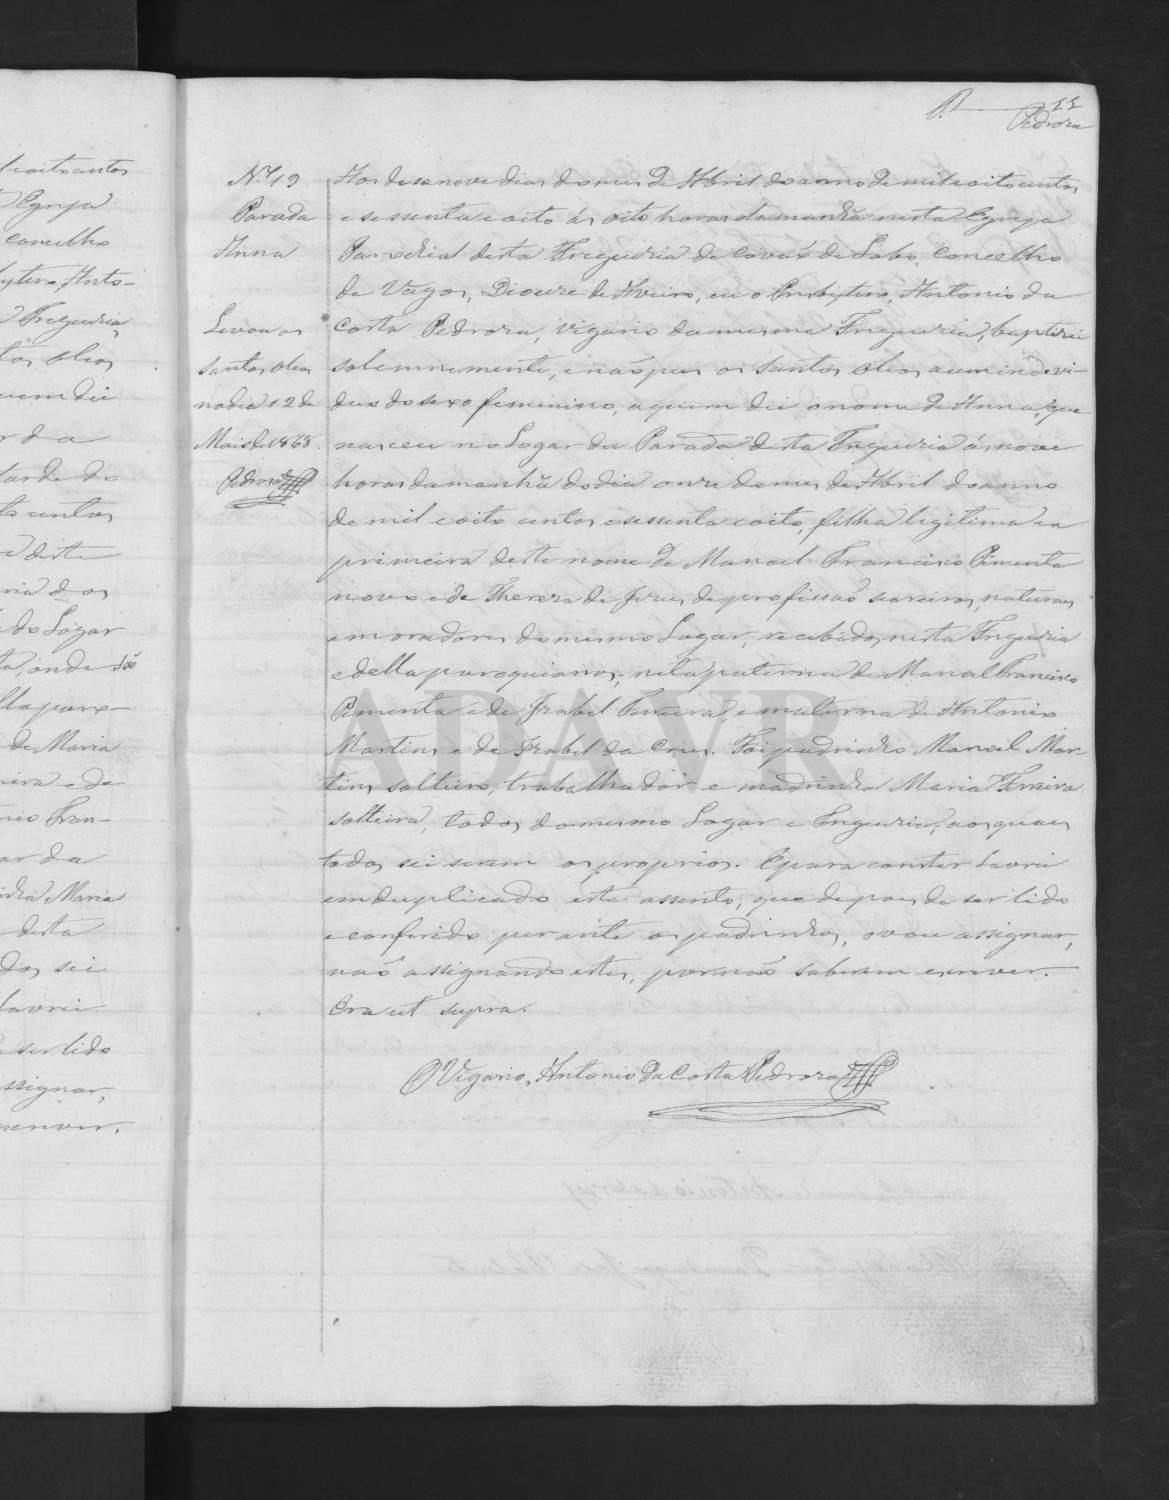 11
Pedroza
N.º 19
Parada
Anna
Levou os
santos oleos
no dia 12 de
Maio de 1868.
Pedroza
Aos desanove dias do mes de Abril do anno de mil oito centos
e sessenta e oito ás oito horas da manhã nesta Egreja
Parochial desta Freguezia de Covaõ de Lobo, Concelho
de Vagos, Diocese de Aveiro, eu o Presbytero, Antonio da
Costa Pedroza, Vigario da mesma Freguezia, baptizei
solemnemente, e naõ pus os santos oleos a um indevi-
duo do sexo femenino, a quem dei o nome de Anna, que
nasceu no Logar da Parada desta Freguezia ás nove
horas da manhã do dia onze do mes de Abril do anno
de mil e oito centos e sessenta e oito, filha legitima e a
primeira deste nome de Manoel Francisco Pimenta
novo e de Thereza de Jesus, de profissaõ seareiros, naturaes
e moradores do mesmo Logar, recebidos nesta Freguezia
e della paroquianos; neta paterna de Manoel Francisco
Pimenta e de Izabel Ferreira, e materna de Antonio
Martins e de Izabel da Crus. Foi padrinho Manoel Mar-
tins solteiro, trabalhador e madrinha Maria Ferreira
solteira, todos do mesmo Logar e Freguezia, aos quaes
todos sei serem os proprios. E para constar lavrei
em duplicado este assento, que depois de ser lido
e conferido perante os padrinhos, o vou assignar,
naõ assignando estes, por naõ saberem escrever.
Era ut supra.
O Vigario, Antonio da Costa Pedroza
ADAVR